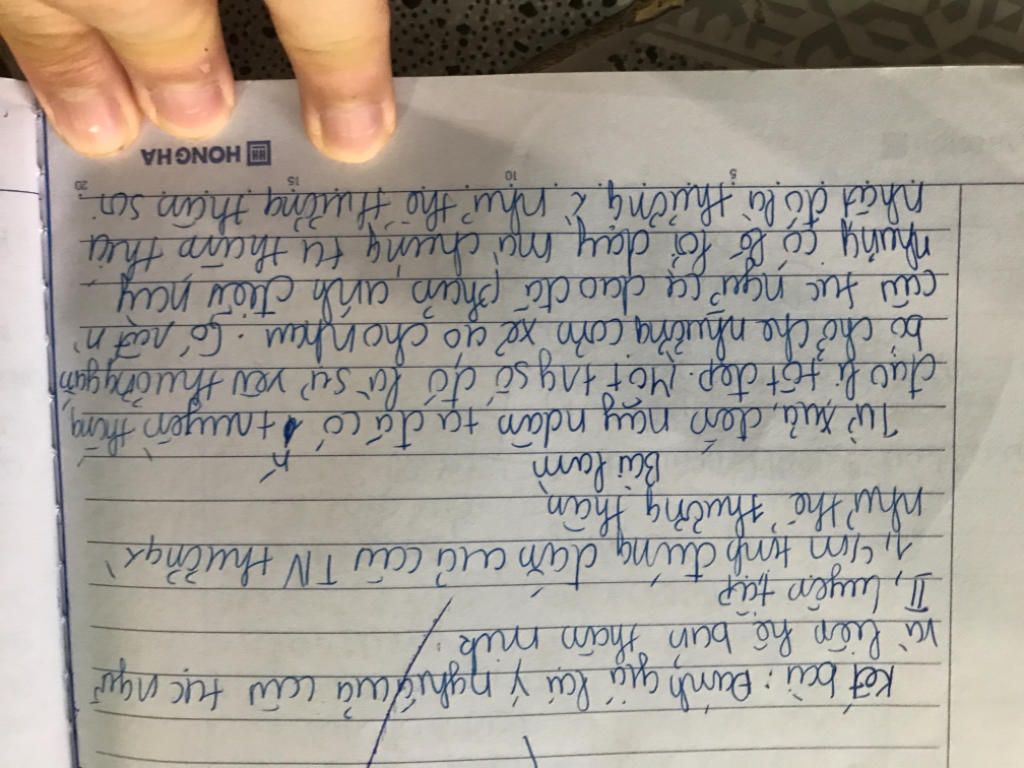 Kết bài: Đánh giá lại ý nghĩa của câu tục ngữ
và liên hệ bản thân mik.
II, Luyện tập
1, C/m tính đúng đắn của câu TN thương
như thể thương thân
Bài làm
Từ xưa, đến nay ndân ta đã có truyền thống
đạo lí tốt đẹp. Một tng số đó là sự yêu thương gắn
bó chở che nhường cơm xẻ áo cho nhau. Có rất n`
câu tục ngữ ca dao đã phản ánh điều này
nhưng có lẽ lời dạy mà chúng ta thấm thía
nhất đó là thương như thể thương thân
HONG HA
5
10
15
20